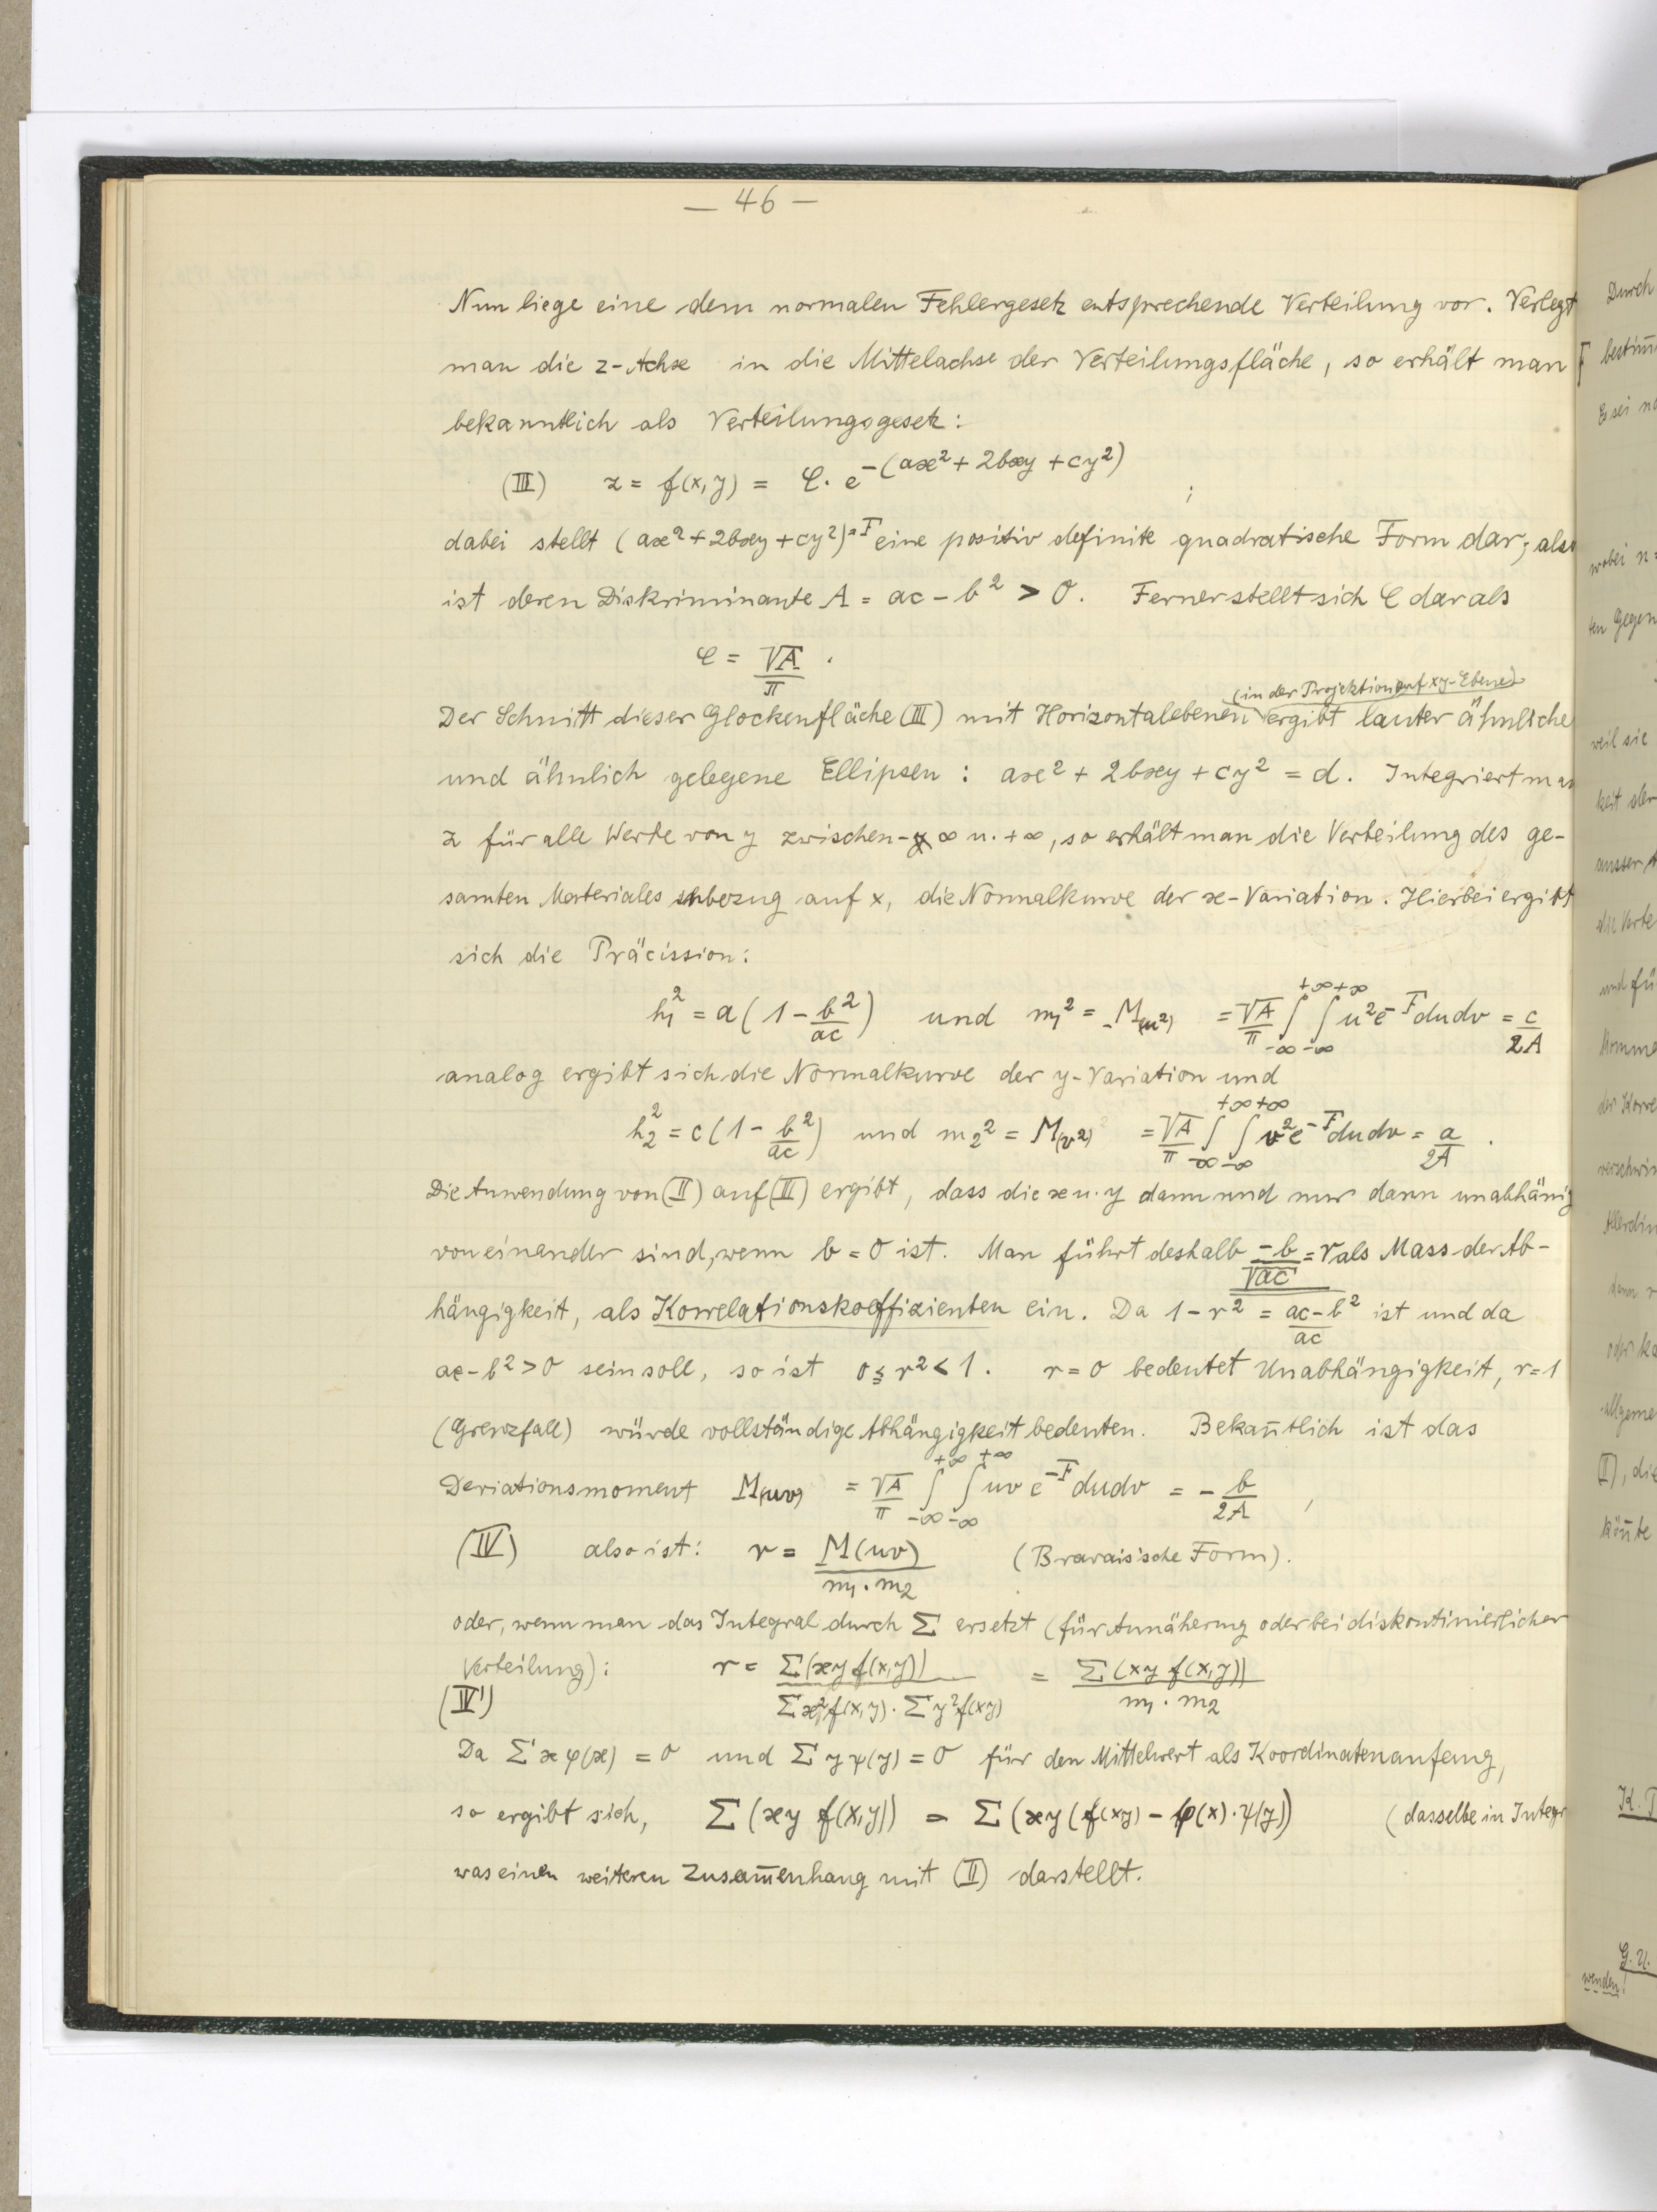 — 46 —
Nun liege eine dem normalen Fehlergesetz entsprechende Verteilung vor. Verlegt
man die z-Achse in die Mittelachse der Verteilungsfläche, so erhält man
bekanntlich als Verteilungsgesetz:
(III) z = f(x,y) = C · e^{-(ax² + 2bxy + cy²)} ;
dabei stellt (ax² + 2bxy + cy²) = F eine positiv definite quadratische Form dar; also
ist deren Diskriminante A = ac - b² > 0. Ferner stellt sich C dar als
C = √A/π .
(in der Projektion auf xy-Ebene)
Der Schnitt dieser Glockenfläche (III) mit Horizontalebenen ergibt lauter ähnliche
und ähnlich gelegene Ellipsen : ax² + 2bxy + cy² = d. Integriert man
z für alle Werte von y zwischen -∞ u. +∞, so erhält man die Verteilung des ge-
samten Materiales inbezug auf x, die Normalkurve der x-Variation. Hierbei ergibt
sich die Präcission:
h₁² = a(1 - b²/ac) und m₁² = M(u²) = √A/π ∫_{-∞}^{+∞} ∫_{-∞}^{+∞} u² e^{-F} du dv = c/2A
analog ergibt sich die Normalkurve der y-Variation und
h₂² = c(1 - b²/ac) und m₂² = M(v²) = √A/π ∫_{-∞}^{+∞} ∫_{-∞}^{+∞} v² e^{-F} du dv = a/2A .
Die Anwendung von (II) auf (III) ergibt, dass die x u. y dann und nur dann unabhänig
voneinander sind, wenn b = 0 ist. Man führt deshalb -b/√ac = r als Mass der Ab-
hängigkeit, als Korrelationskoeffizienten ein. Da 1 - r² = ac-b²/ac ist und da
ac - b² > 0 sein soll, so ist 0 ≤ r² < 1. r = 0 bedeutet Unabhängigkeit, r = 1
(Grenzfall) würde vollständige Abhängigkeit bedeuten. Bekan̄tlich ist das
Deviationsmoment M(uv) = √A/π ∫_{-∞}^{+∞} ∫_{-∞}^{+∞} uv e^{-F} du dv = - b/2A ,
(IV) also ist: r = M(uv)/m₁·m₂ (Bravais'sche Form).
oder, wenn man das Integral durch Σ ersetzt (für Annäherung oder bei diskontinierlicher
Verteilung): r = Σ(xy f(x,y))/Σx²f(x,y)·Σy²f(xy) = Σ(xy f(x,y))/m₁·m₂
(IV')
Da Σ x φ(x) = 0 und Σ y ψ(y) = 0 für den Mittelwert als Koordinatenanfang,
so ergibt sich, Σ(xy f(x,y)) = Σ(xy(f(xy) - φ(x)·ψ(y)) (dasselbe in Integr
was einen weiteren Zusam̄enhang mit (II) darstellt.
Durch
Es sei
wobei n =
ten Gegen
weil sie
ausser
dann r
(II), die
kön̄te
K.
G. U.
wenden!